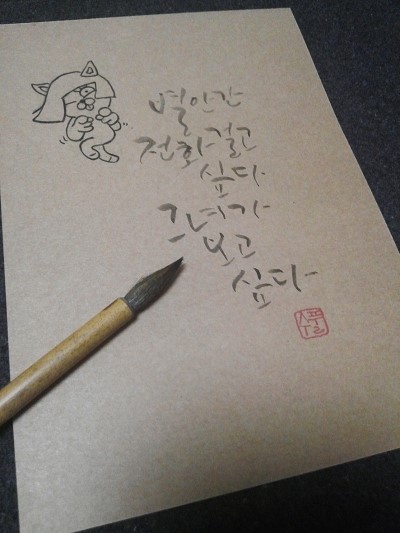 별안간
전화걸고
싶다
그녀가
보고
싶다